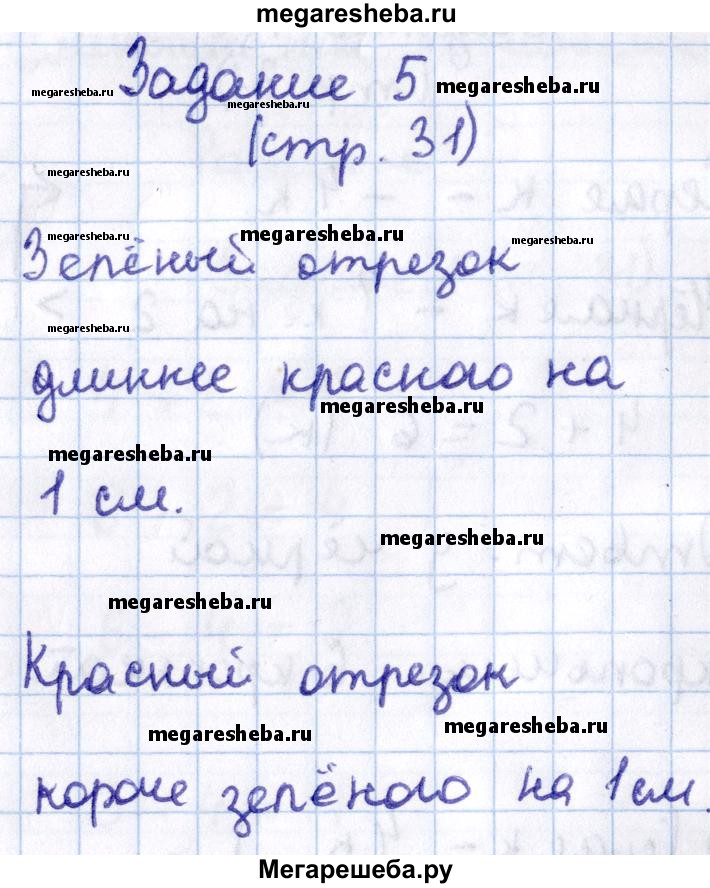 megaresheba.ru
Задание 5
megaresheba.ru
megaresheba.ru
megaresheba.ru
(стр. 31)
megaresheba.ru
megaresheba.ru
megaresheba.ru
megaresheba.ru
Зелёный отрезок
megaresheba.ru
длиннее красного на
megaresheba.ru
megaresheba.ru
1 см.
megaresheba.ru
megaresheba.ru
Красный отрезок
megaresheba.ru
megaresheba.ru
короче зелёного на 1 см.
Мегарешеба.ру